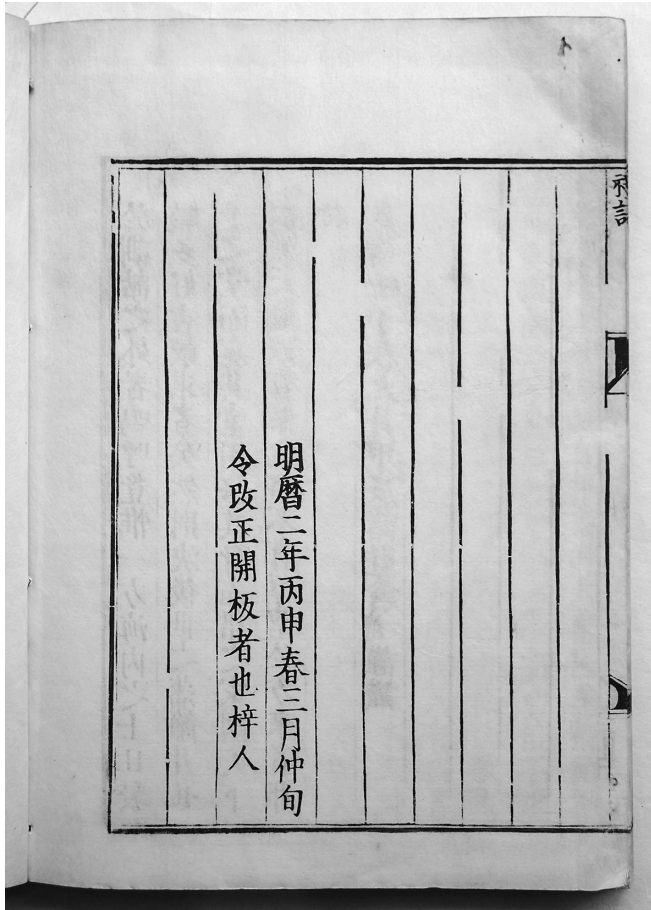 明曆二年丙申春三月仲旬
令改正開板者也梓人